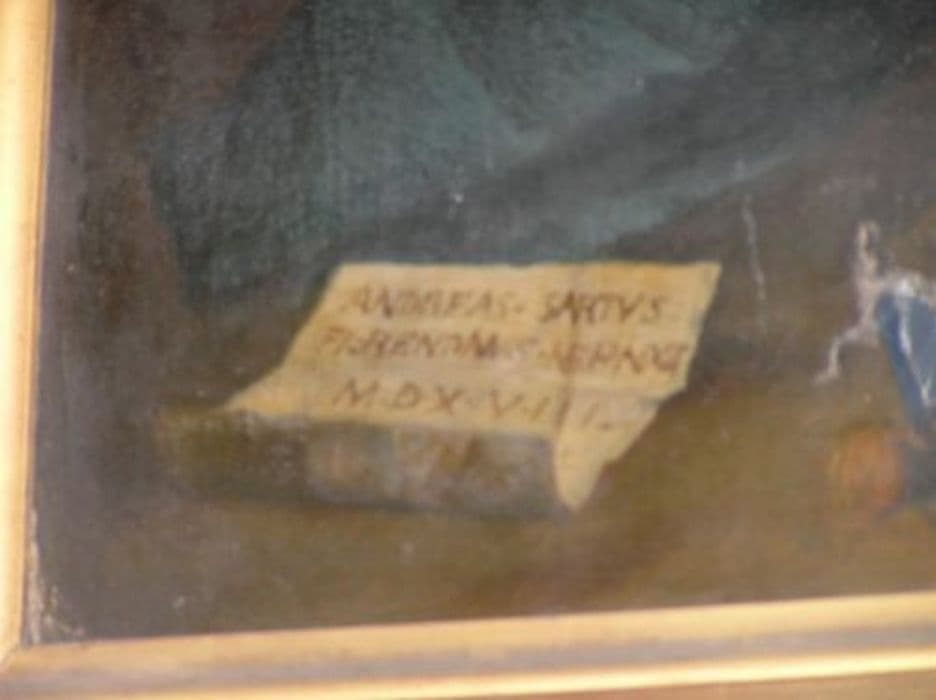 ANDREAS · SARTVS
FLORENTINVS
M·D·X·V·III